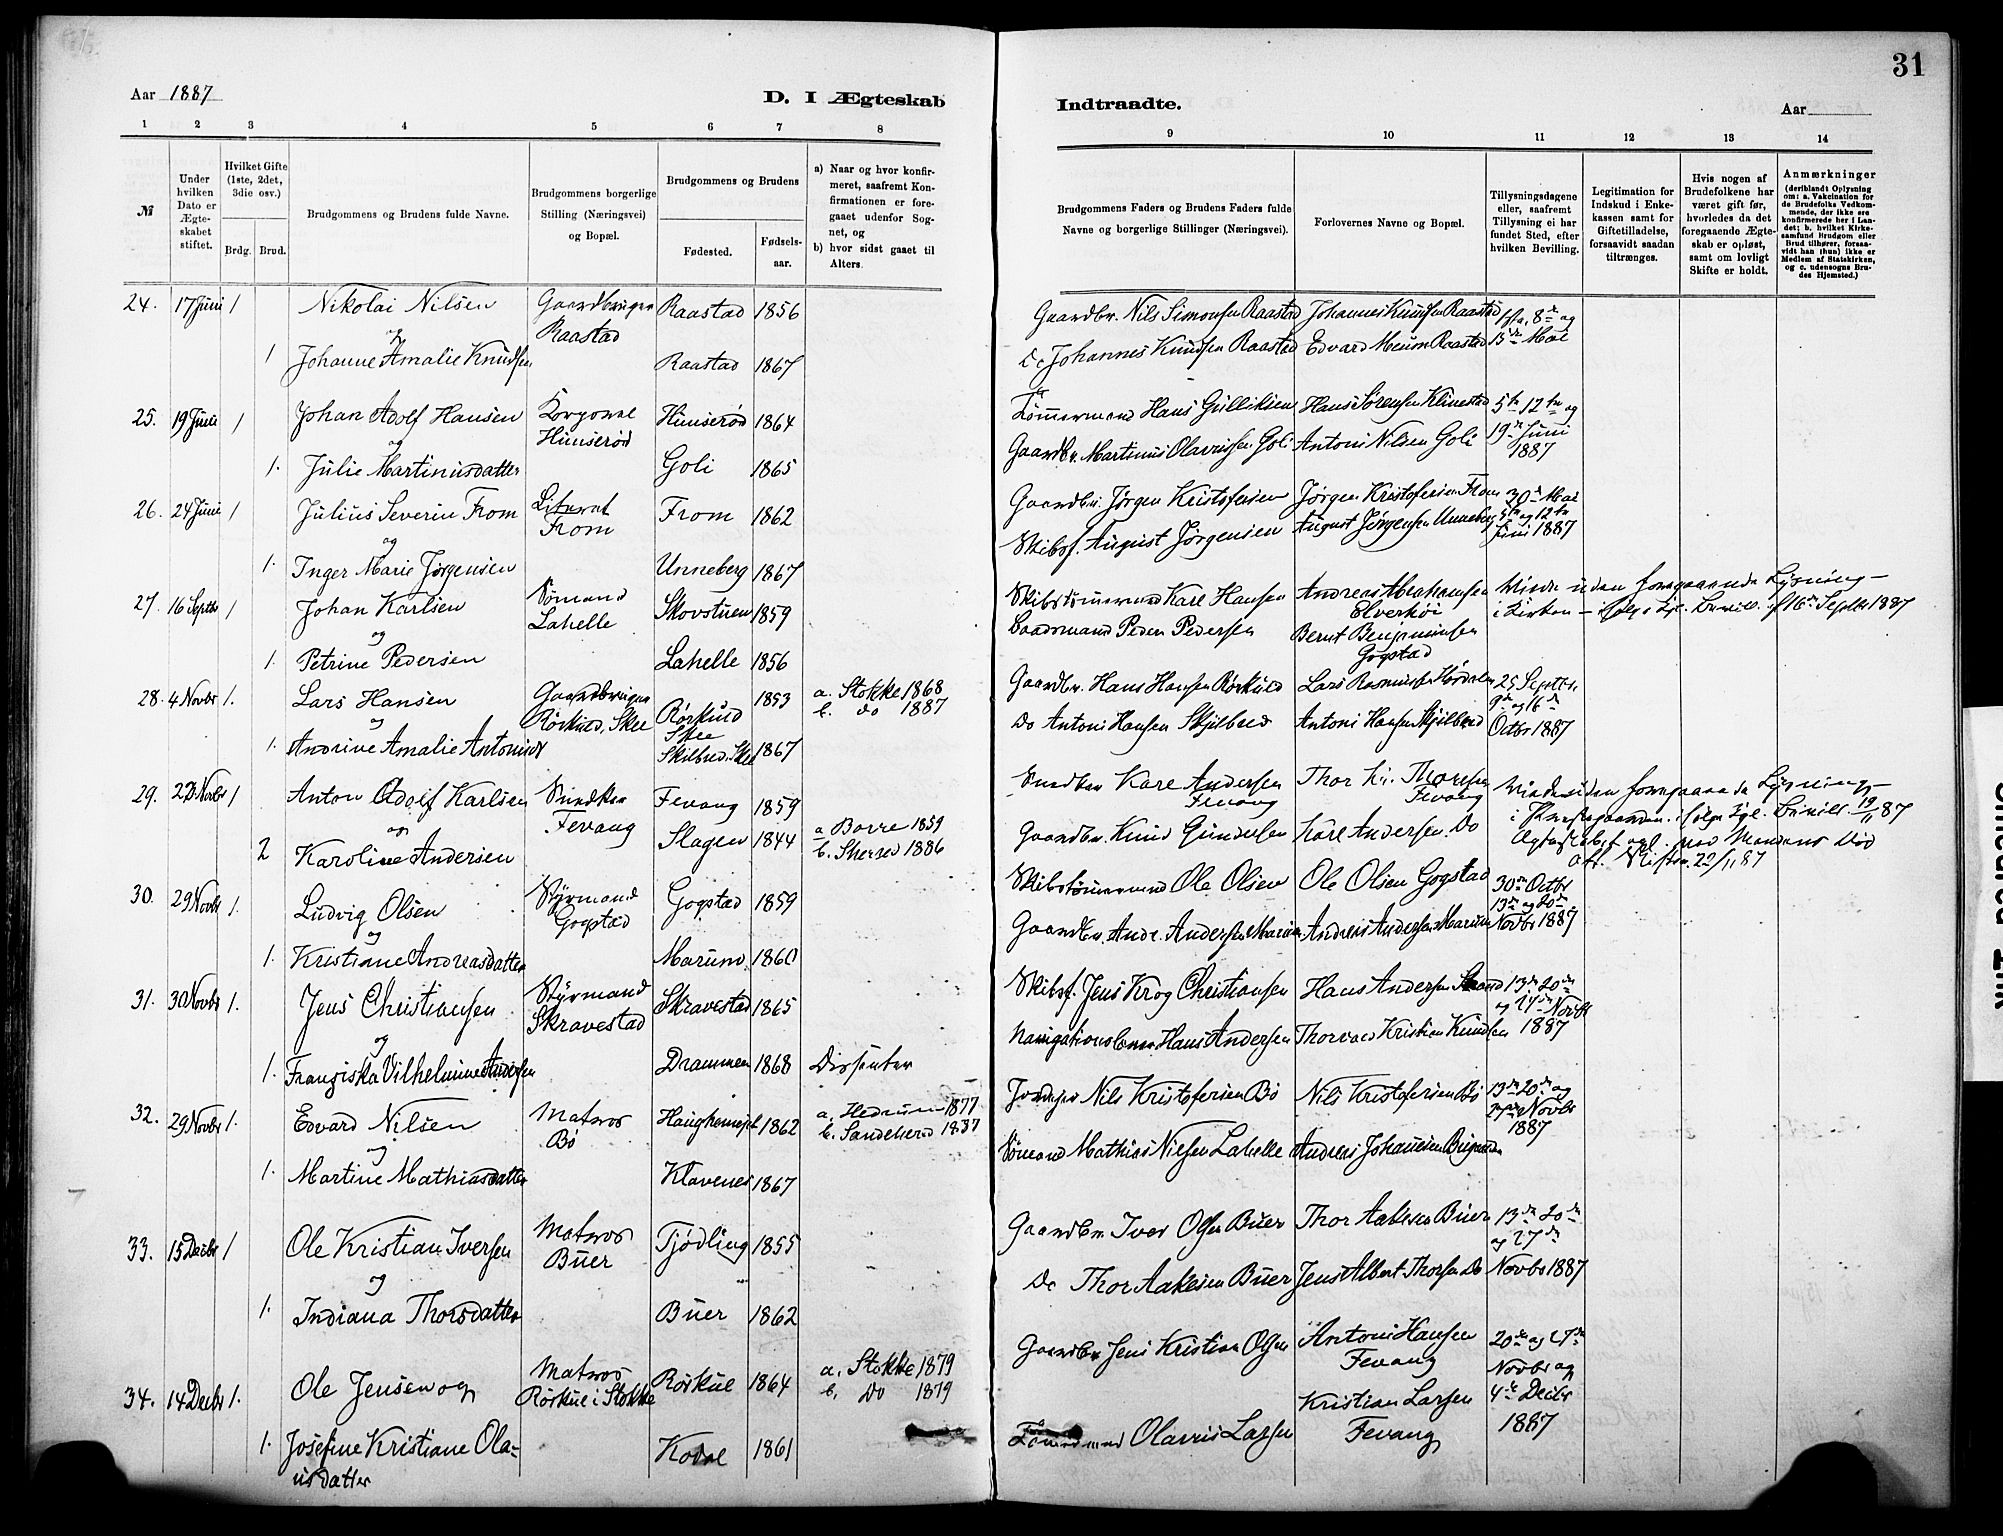 31
Aar 1887
D. I Ægteskab
Indtraadte.
Aar
1 2 3 4 5 6 7 8
9 10 11 12 13 14
№
Under hvilken Dato er Ægteskabet stiftet.
Hvilket Gifte (1ste, 2det, 3die osv.)
Brdg. Brud.
Brudgommens og Brudens fulde Navne.
Brudgommens borgerlige Stilling (Næringsvei) og Bopæl.
Brudgommens og Brudens
Fødested.
Fødselsaar.
a) Naar og hvor konfirmeret, saafremt Konfirmationen er foregaaet udenfor Sognet, og
b) hvor sidst gaaet til Alters.
Brudgommens Faders og Brudens Faders fulde Navne og borgerlige Stillinger (Næringsvei).
Forlovernes Navne og Bopæl.
Tillysningsdagene eller, saafremt Tillysning ei har fundet Sted, efter hvilken Bevilling.
Legitimation for Indskud i Enkekassen samt for Giftetilladelse, forsaavidt saadan tiltrænges.
Hvis nogen af Brudefolkene har været gift før, hvorledes da det foregaaende Ægteskab er opløst, samt om lovligt Skifte er holdt.
Anmærkninger
(deriblandt Oplysning om: a. Vakcination for de Brudefolks Vedkommende, der ikke ere konfirmerede her i Landet; b. hvilket Kirkesamfund Brudgom eller Brud tilhører, forsaavidt han (hun) ikke er Medlem af Statskirken, og c. udensogns Brudes Hjemsted.)
24. 17 Juni 1 Nikolai Nilsen Gaardbruger Raastad 1856 Gaardbr. Nils Simonsen Raastad Johannes Knudsen Raastad
og Raastad
1 Johanne Amalie Knudsen Raastad 1867 Do Johannes Knudsen Raastad Edvard Meum Raastad
25. 19 Juni 1 Johan Adolf Hansen Himserød 1864 Tømmermand Hans Gulliksen Hans Sørensen Klinestad 5te 12te og
og Himserød 19de Juni
1. Julie Martinusdatter Goli 1865 Gaardbr. Martinus Olavussen Goli Antoni Nilsen Goli 1887
26. 24 Juni 1 Julius Severin Trom Trom Trom 1862 Gaardbr. Jørgen Kristofersen Jørgen Kristofersen Trom 30de Mai
og 5te og 12te
1. Inger Marie Jørgensen Unneberg 1867 Skibsf. August Jørgensen August Jørgensen Unneberg Juni 1887
27. 16 Septbr 1 Johan Karlsen Sømand Skovstuen 1859 Skibstømmermand Karl Hansen Andreas Abrahamsen Viede uden foregaaende Lysning
og Lahelle Elverhøi i Kirken ifølge Kgl. Bevill. af 16de Septbr 1887
1. Petrine Pedersen Lahelle 1856 Baadsmand Peder Pedersen Bernt Benjaminsen
Gogstad
28. 4 Novbr 1. Lars Hansen Gaardbruger Rørkuld 1853 a. Stokke 1868 Gaardbr. Hans Hansen Rørkuld Lars Rasmussen 25 Septbr.
og Rørkuld, Skee Skee b. do 1887 9de og 16de
1. Andrine Amalie Antonisdt Skilbred, Skee 1867 Do Antoni Hansen Skjelbred Antoni Hansen Skjelbred Octbr 1887
29. 1 Anton Adolf Karlsen Fevang 1859 Karl Andersen Thor Kr. Thoresen Viede uden foregaaende Lysning
og Fevang Fevang Fevang i Præstegaarden ifølge Kgl. Bevill. 19/11 87
2 Karoline Andersen Slagen 1844 a. Borre 1859 Gaardbr. Knud Gundersen Karl Andersen Do Ægteskabet opl. ved Mandens Død
b. 1886 Att. Skifter. 29/11 87
30. 29 Novbr 1. Ludvig Olsen Styrmand Gogstad 1859 Skibstømmermand Ole Olsen Ole Olsen Gogstad 30te Octbr
og Gogstad 13de og 20de
1. Kristiane Andreasdatter Marum 1860 Gaardbr. Andr. Andersen Marum Andreas Andersen Marum Novbr 1887
31. 30 Novbr 1. Jens Christiansen Styrmand Skravestad 1865 Skibsf. Jens Krog Christiansen Hans Andersen 13de 20de
og Skravestad og 27de Novbr
1. Franziska Vilhelmine Andersen Drammen 1868 Dissenter Hans Andersen Thorvald Kristian Knudsen 1887
32. 29 Novbr 1. Edvard Nilsen Matros 1862 a. Hedrum 1877 Nils Kristofersen Bø Nils Kristofersen Bø 13de 20de og
og Bø b. Sandeherred 1887 27de Novbr
1. Martine Mathiasdatter Klavenes 1867 Sømand Mathias Nielsen Lahelle Andreas Johannesen 1887
33. 15 Decbr 1 Ole Kristian Iversen Matros Tjødling 1855 Gaardbr. Iver Olsen Buer Thor Aakesen Buer 13de 20de
og Buer og 27de
1. Indiana Thorsdatter Buer 1862 Do Thor Aakesen Buer Jens Albert Thorsen Do Novbr 1887
34. 14 Decbr 1. Ole Jensen og Matros Rørkul 1864 a. Stokke 1879 Gaardbr Jens Kristian Olsen Antoni Hansen 20de og 27de
Rørkul i Stokke b. Do 1879 Fevang Novbr og
1. Josefine Kristiane Ola- Kodal 1861 Tømmermand Olavus Larsen Kristian Larsen 4de Decbr
usdatter Fevang 1887